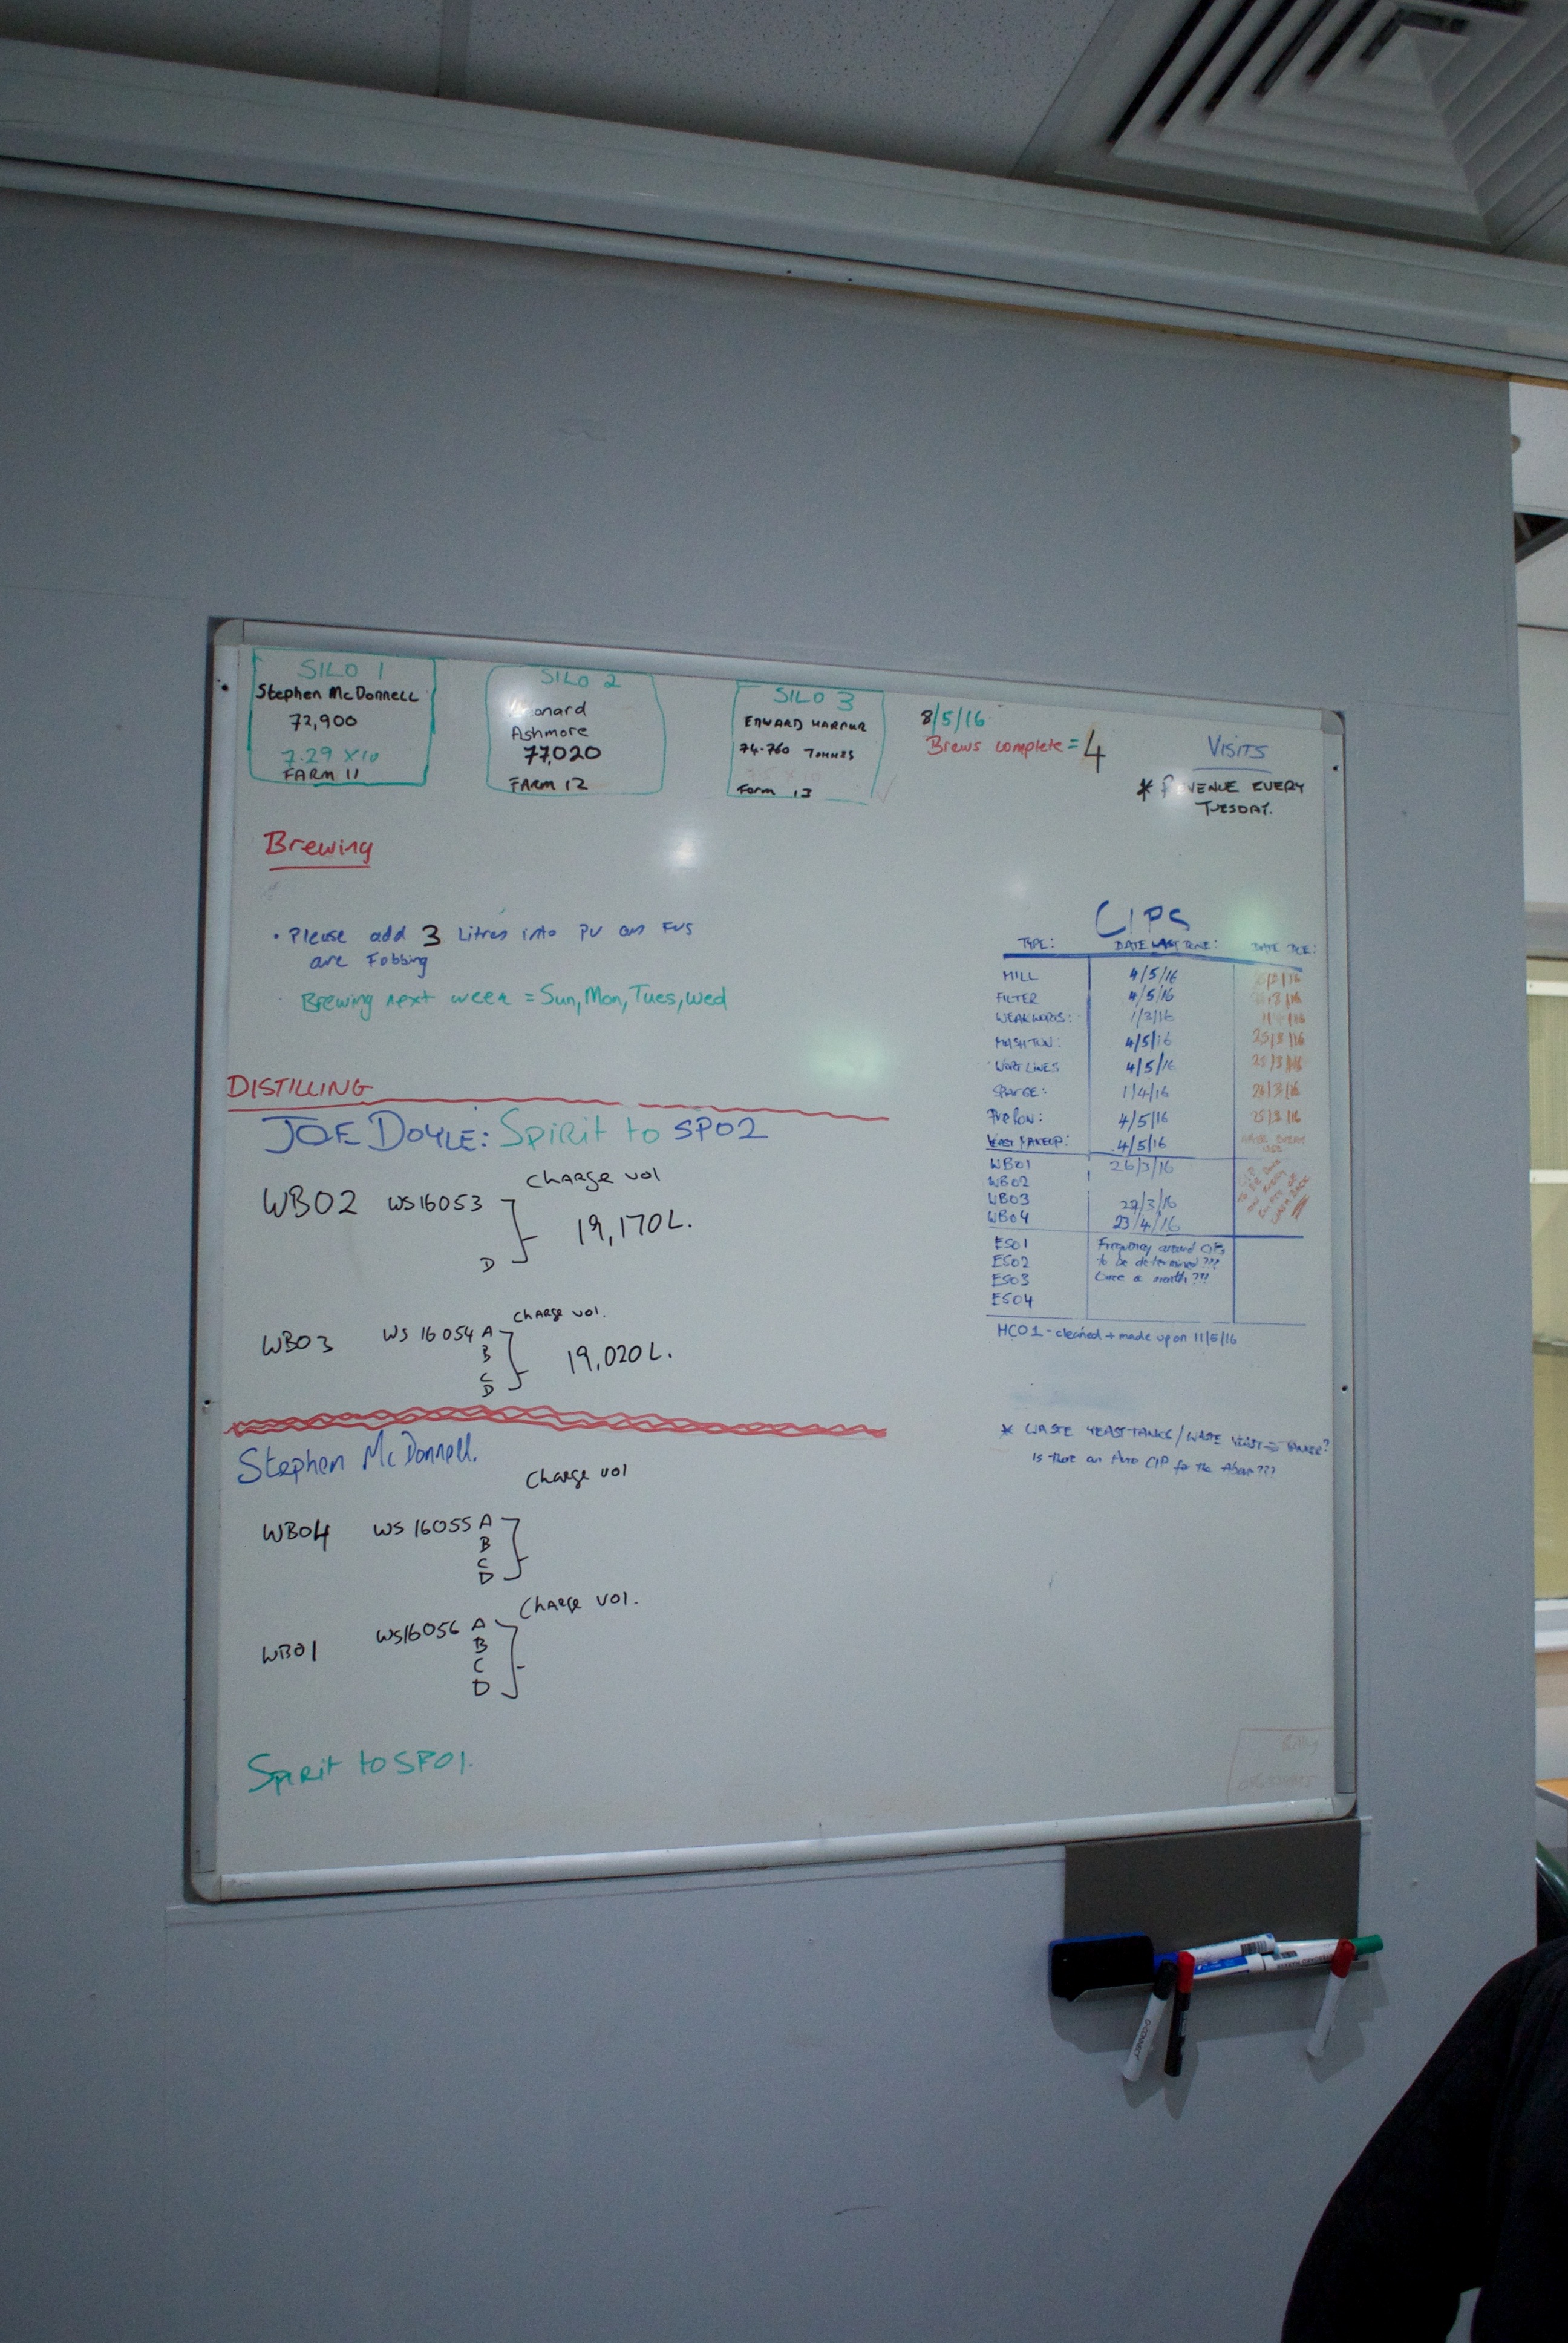 SILO 1
Stephen McDonnell
72,900
7.29 x10
FARM 11
SILO 2
Ashmore
77,020
FARM 12
SILO 3
EDWARD HARPUR
74.760 TONNES
Farm 13
8/5/16
Brews complete = 4
VISITS
* REVENUE EVERY
TUESDAY.
Brewing
• Please add 3 Litres into PV as FVs
are Fobbing
Brewing next week = Sun, Mon, Tues, Wed
DISTILLING
JOE DOYLE: Spirit to SP02
Charge vol
WB02 WS16053
19,170L.
D
Charge vol.
WB03 WS 16054 A
B
19,020L.
C
D
Stephen McDonnell.
Charge vol
WB04 WS 16055 A
B
C
D
Charge vol.
WB01 WS16056 A
B
C
D
Spirit to SP01.
CIPS
TYPE: DATE LAST DONE: DATE DUE:
MILL 4/5/16
FILTER 4/5/16
WEAK WORTS: 1/3/16
MASH TUN: 4/5/16 25/3/16
WORT LINES 4/5/16 25/3/16
SPARGE: 1/4/16 28/3/16
Pre Run: 4/5/16 25/3/16
YEAST MAKEUP: 4/5/16
WB01 26/3/16
WB02
WB03 22/3/16
WB04 23/4/16
ES01 Frequency around CIPs
ES02 to be determined???
ES03 Once a month???
ES04
HC01 - cleaned + made up on 11/5/16
* WASTE YEAST TANKS / WASTE YEAST TANKER?
Is there an Auto CIP for the Above???
Billy